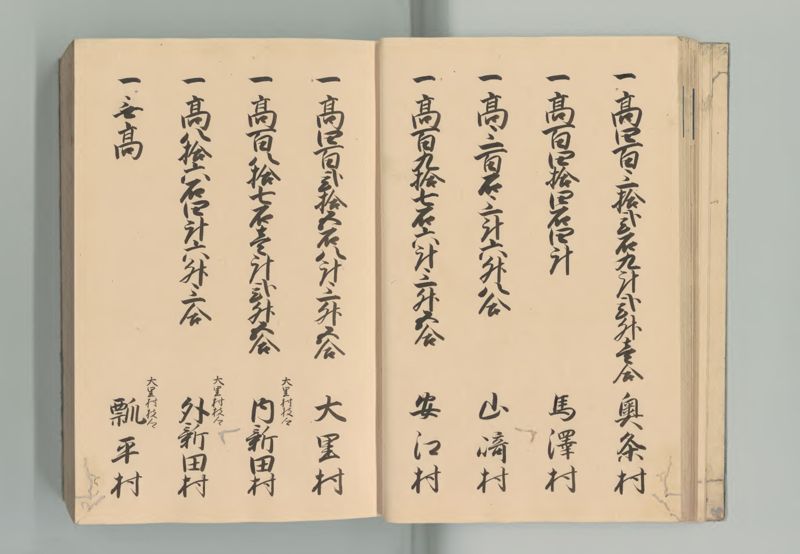 一高四百三拾弐石九斗弐升壱合 奥条村
一高百四拾四石四斗 馬澤村
一高三百石三斗六升八合 山崎村
一高百九拾七石六斗三升五合 安江村
一高四百弐拾五石八斗三升五合 大里村
一高百八拾七石壱斗弐升五合 大里村枝々 内新田村
一高八拾六石四斗六升三合 大里村枝々 外新田村
一無高 大里村枝々 瓢平村